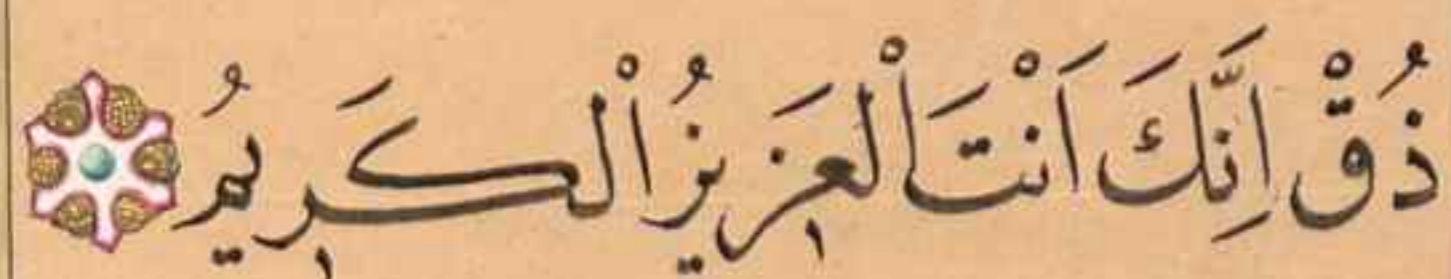 ذُقْ اِنَّكَ اَنْتَ الْعَزٖيزُ الْكَرٖيمُ